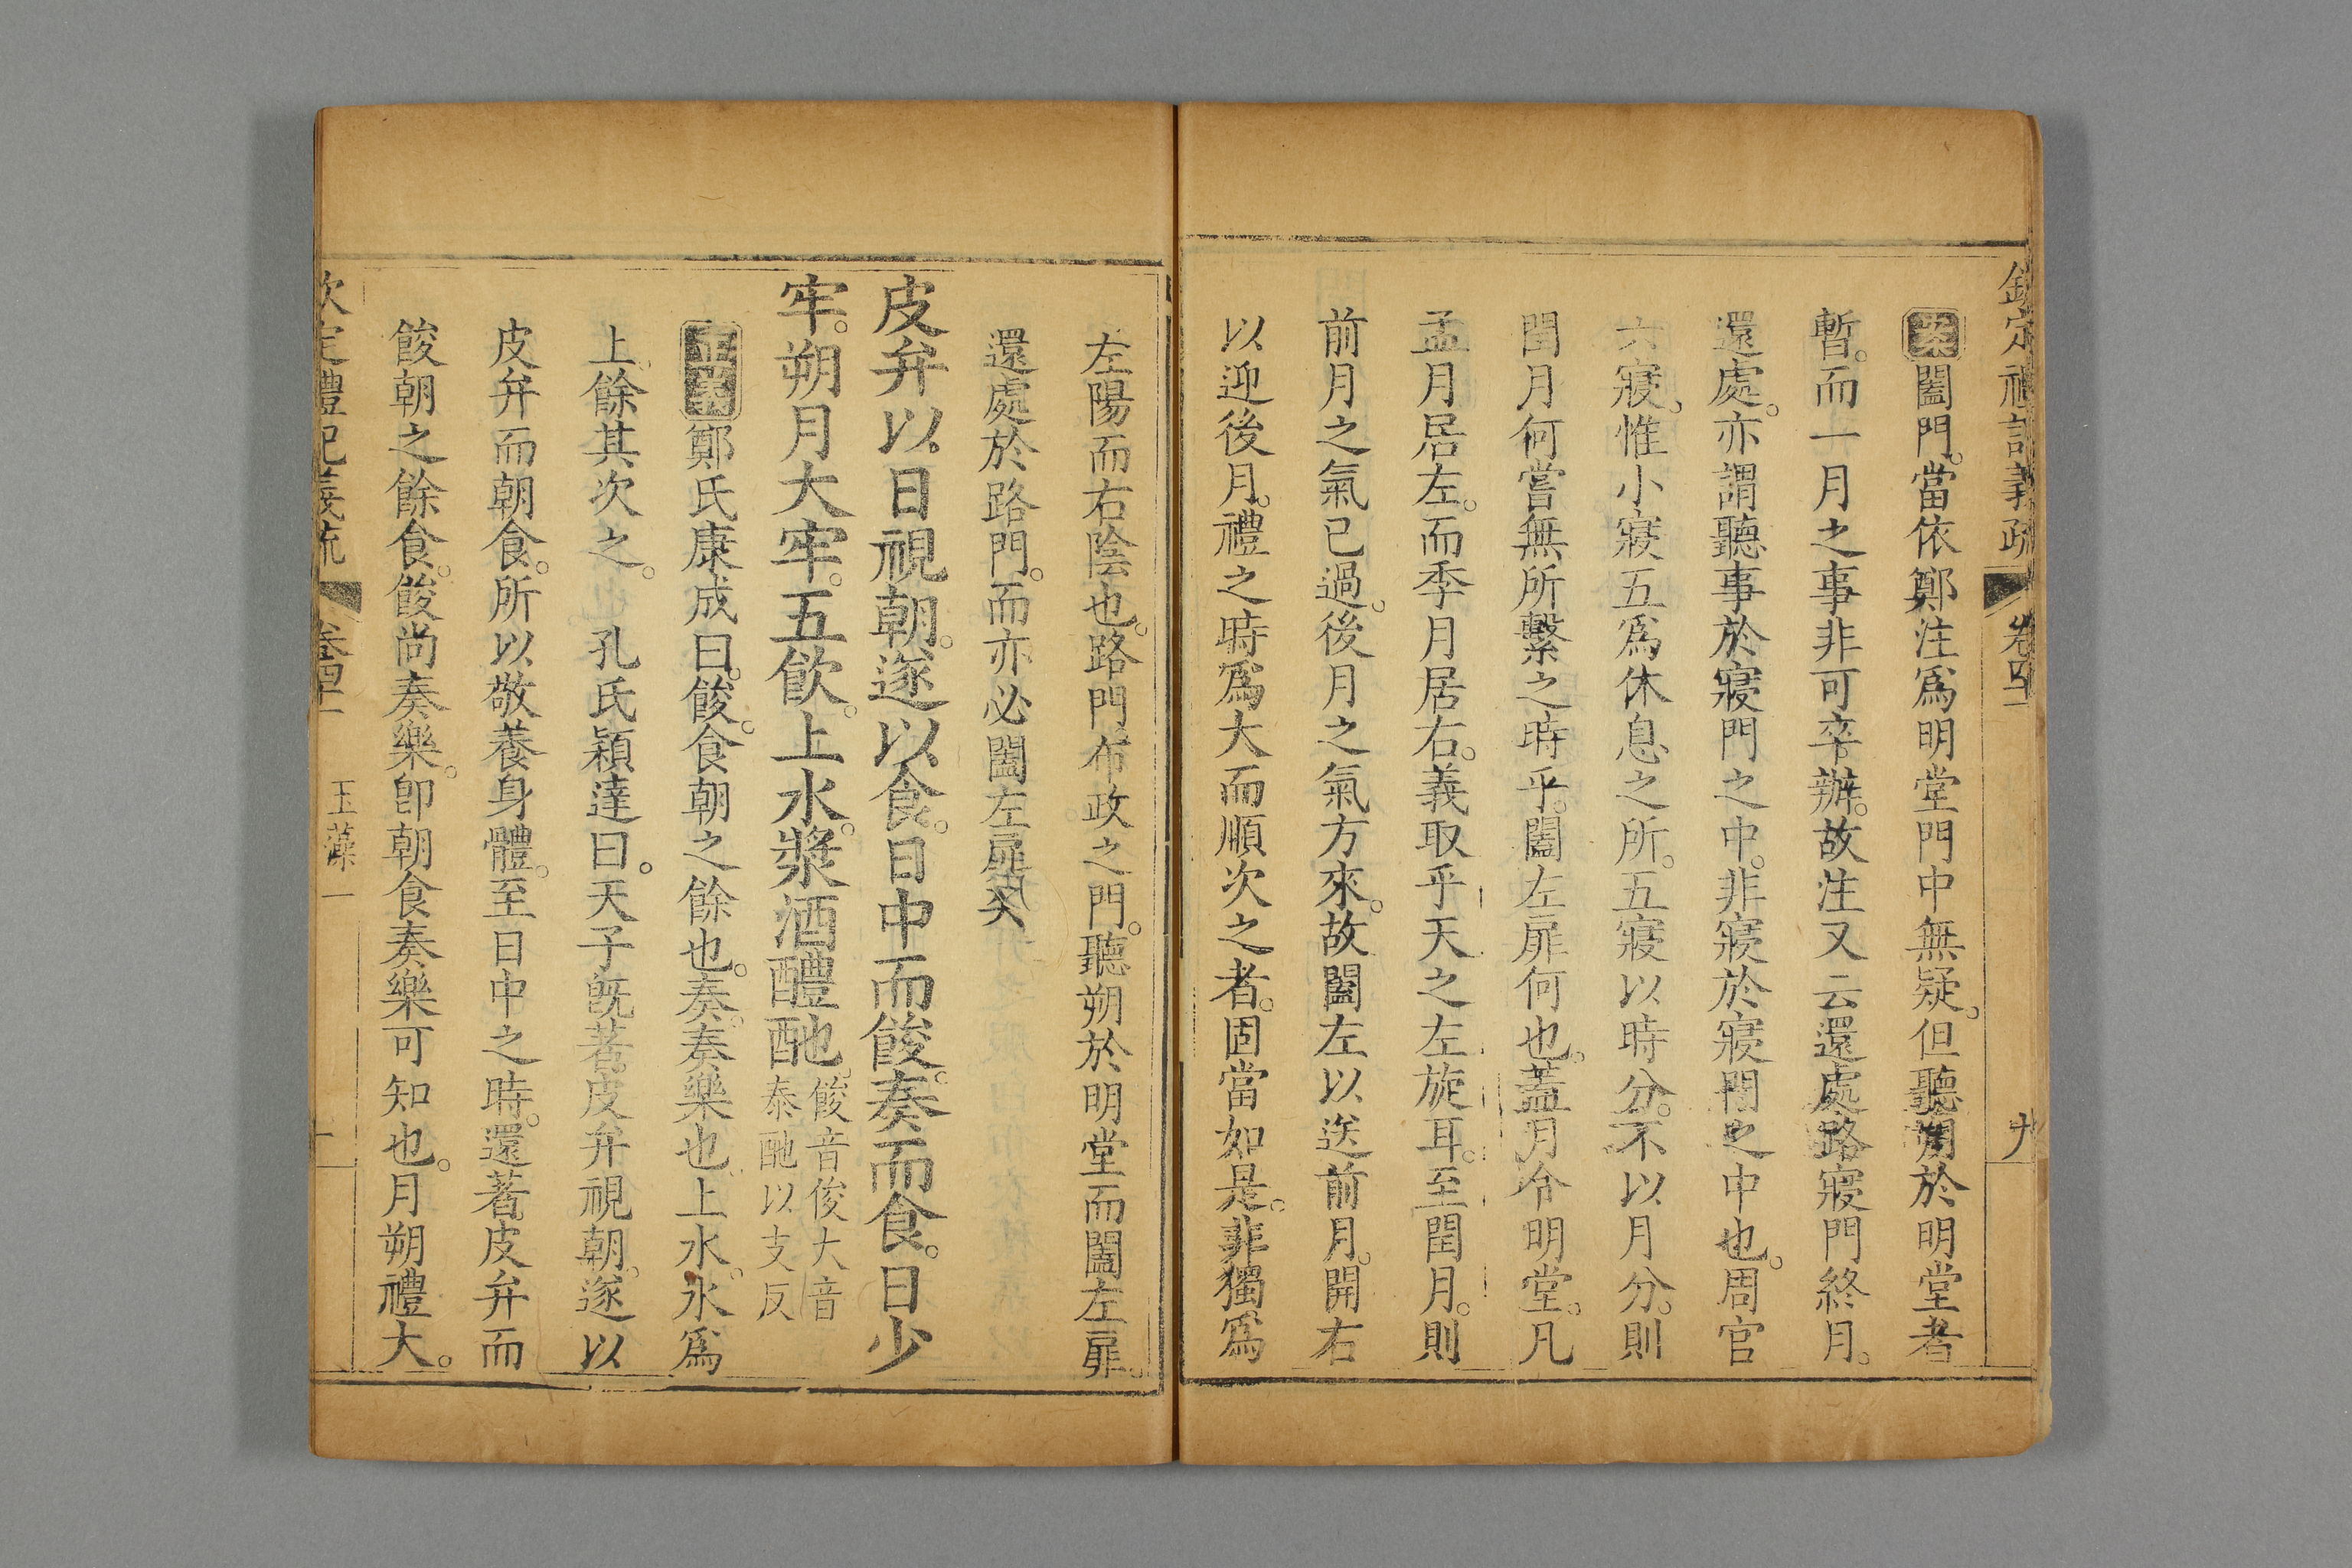 欽定禮記義疏 卷四十一 九
案闔門。當依鄭注爲明堂門中無疑。但聽朔於明堂者
暫。而一月之事非可卒辦。故注又云還處路寢門終月。
還處。亦謂聽事於寢門之中。非寢於寢門之中也。周官
六寢。惟小寢五爲休息之所。五寢以時分。不以月分。則
閏月何嘗無所繫之時乎。闔左扉何也。蓋月令明堂。凡
孟月居左。而季月居右。義取乎天之左旋耳。至閏月。則
前月之氣已過。後月之氣方來。故闔左以送前月。開右
以迎後月。禮之時爲大而順次之者。固當如是。非獨爲
左陽而右陰也。路門布政之門。聽朔於明堂而闔左扉。
還處於路門。而亦必闔左扉矣
皮弁以日視朝。遂以食。日中而餕。奏而食。日少
牢。朔月大牢。五飮。上水。漿酒醴酏。餕音俊大音
泰酏以支反
正義鄭氏康成曰。餕。食朝之餘也。奏。奏樂也。上水。水爲
上。餘其次之。 孔氏穎達曰。天子旣著皮弁視朝。遂以
皮弁而朝食。所以敬養身體。至日中之時。還著皮弁而
餕朝之餘食。餕尚奏樂。卽朝食奏樂可知也。月朔禮大。
欽定禮記義疏 卷四十一 玉藻一